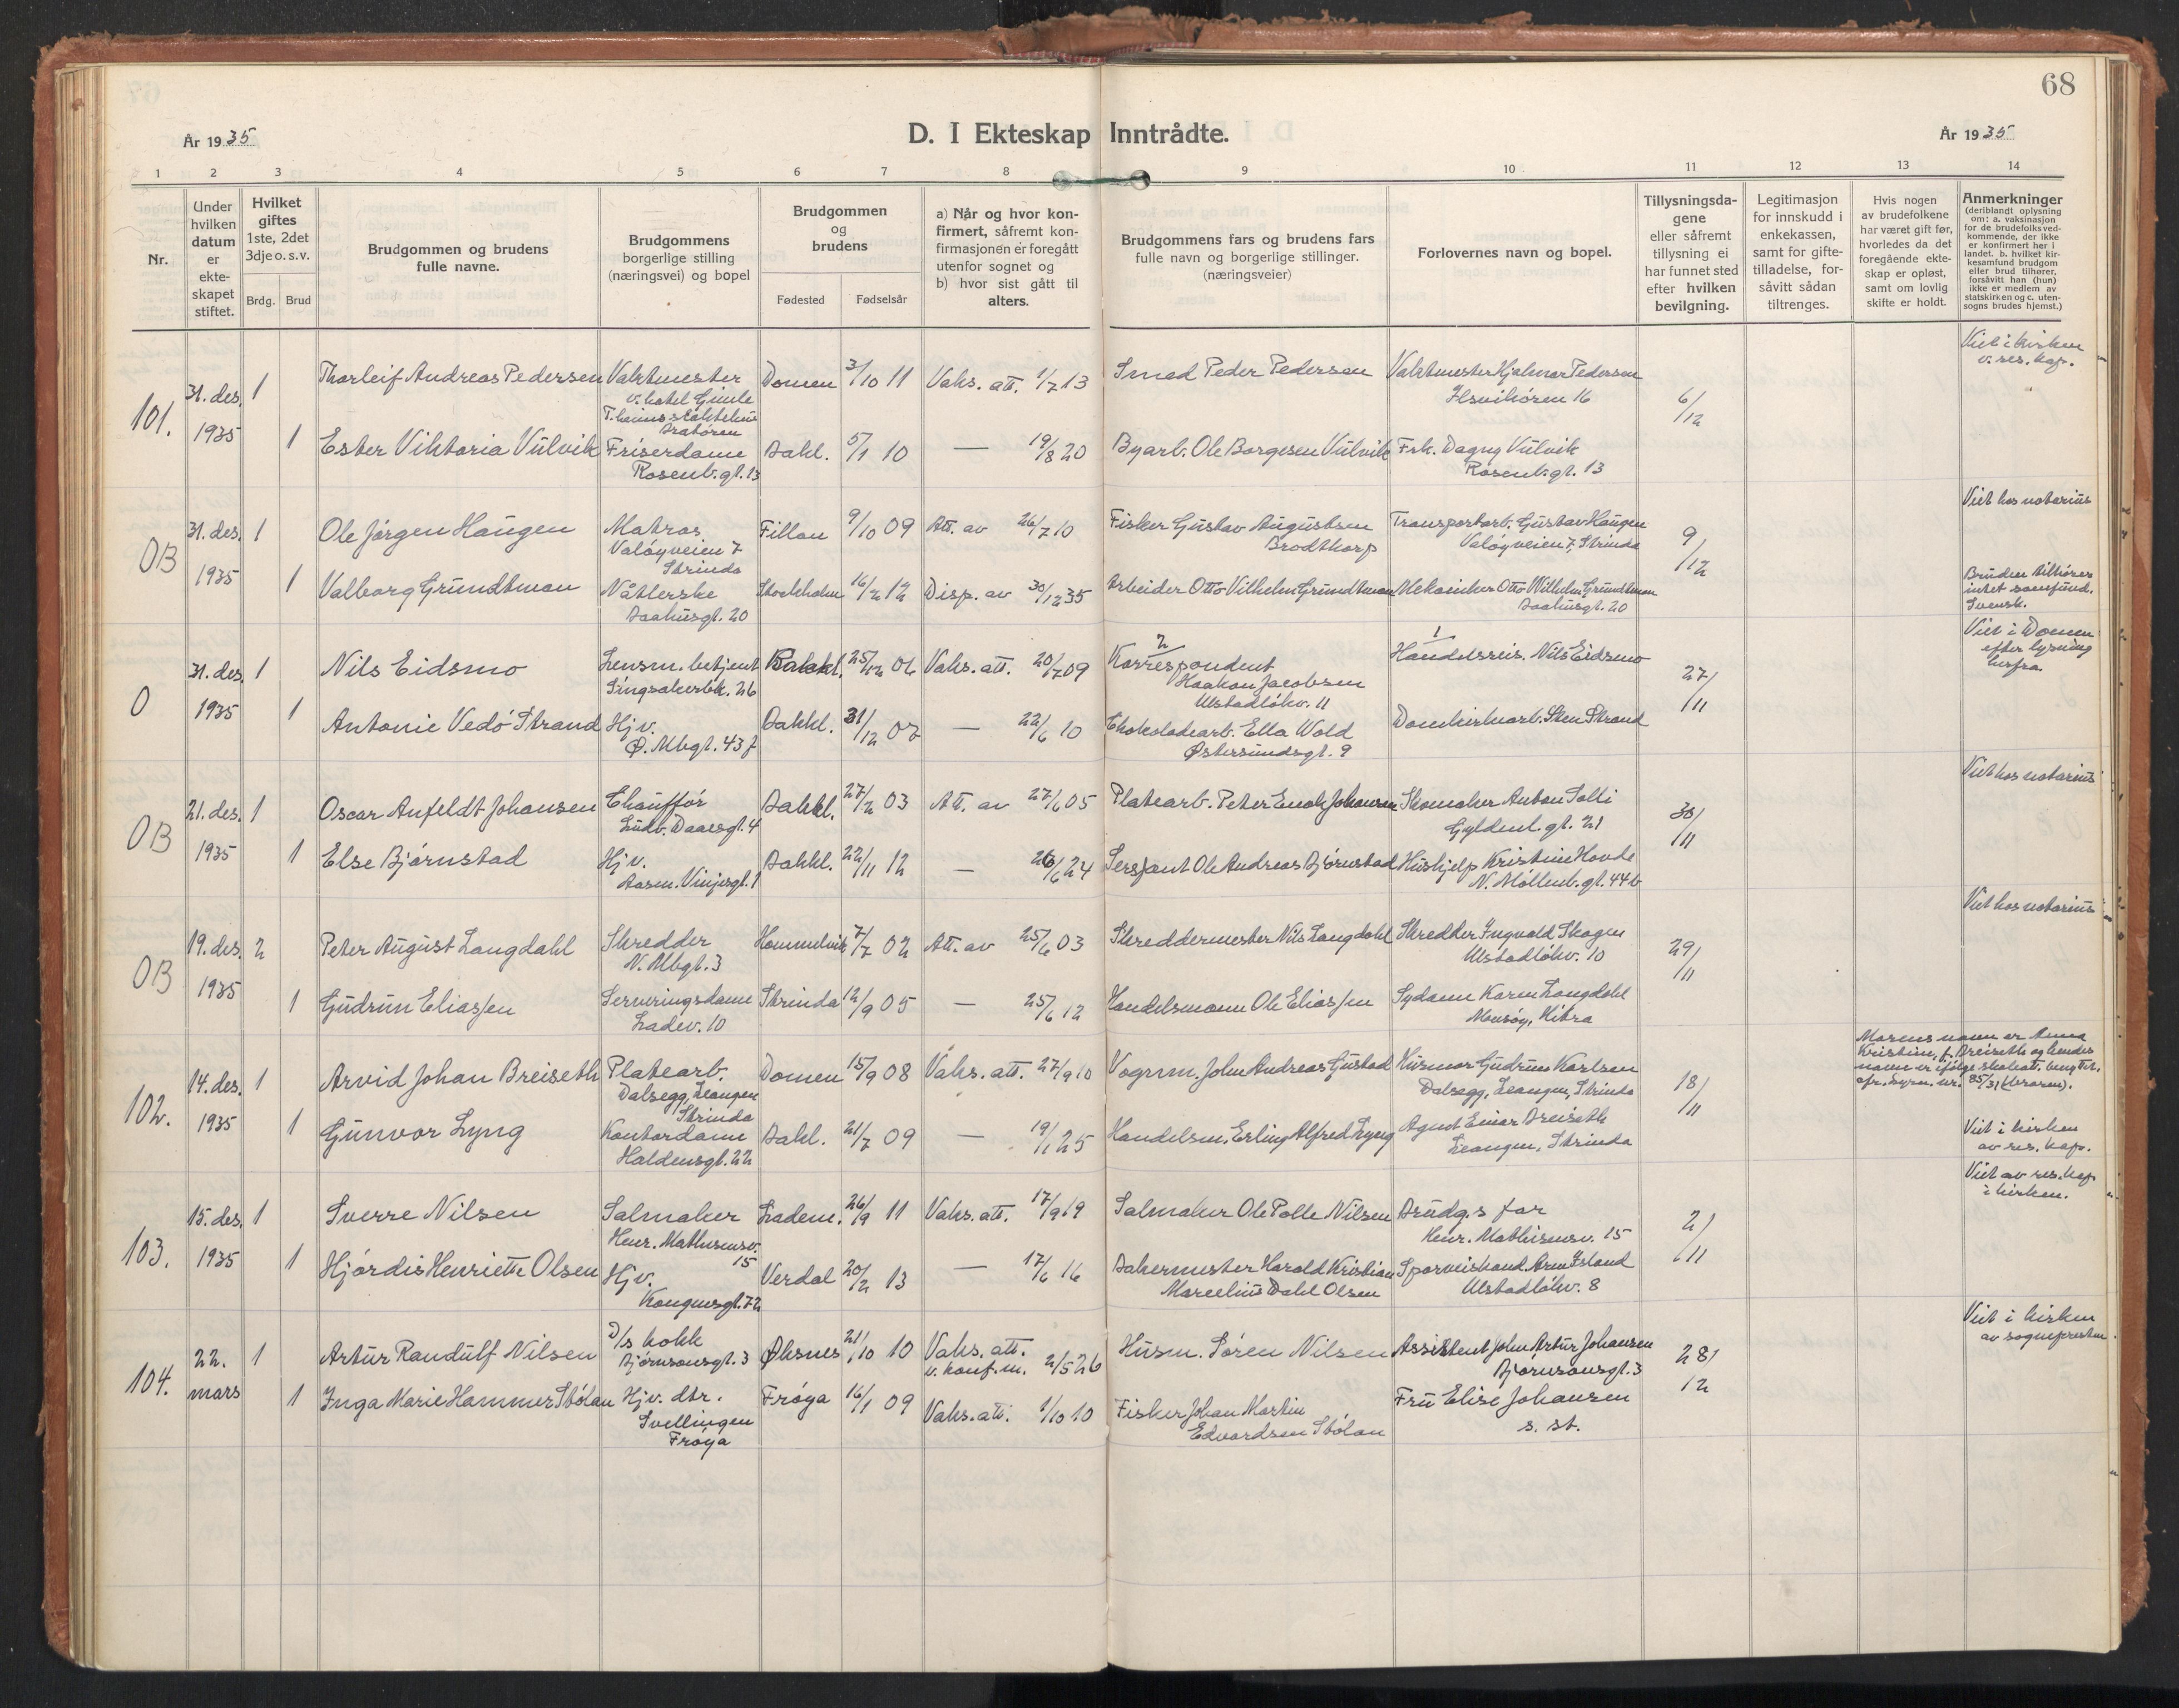 68
År 1935
D. I Ekteskap Inntrådte.
År 1935
1 2 3 4 5 6 7 8 9 10 11 12 13 14
Nr.
Under hvilken datum er ekte-skapet stiftet.
Hvilket giftes 1ste, 2det 3dje o. s. v.
Brdg. Brud
Brudgommen og brudens fulle navne.
Brudgommens borgerlige stilling (næringsvei) og bopel
Brudgommen og brudens
Fødested Fødselsår
a) Når og hvor kon-firmert, såfremt kon-firmasjonen er foregått utenfor sognet og b) hvor sist gått til alters.
Brudgommens fars og brudens fars fulle navn og borgerlige stillinger. (næringsveier)
Forlovernes navn og bopel.
Tillysningsda-gene eller såfremt tillysning ei har funnet sted efter hvilken bevilgning.
Legitimasjon for innskudd i enkekassen, samt for gifte-tilladelse, for-såvitt sådan tiltrenges.
Hvis nogen av brudefolkene har været gift før, hvorledes da det foregående ekte-skap er opløst, samt om lovlig skifte er holdt.
Anmerkninger (deriblandt oplysning om: a. vaksinasjon for de brudefolks ved-kommende, der ikke er konfirmert her i landet. b. hvilket kir-kesamfund brudgom eller brud tilhører, forsåvitt han (hun) ikke er medlem av statskirken og c. uten-sogns brudes hjemst.)
Viet i kirken
v. res. kap.
101. 31. des. 1 Thorleif Andreas Pedersen Vaktmester Domen 3/10 11 Vaks. att. 1/7 13 Smed Peder Pedersen Vaktmester Hjalmar Pedersen
v. hotel Gimle Ilsvikøren 16 6/12
1935 1 Ester Viktoria Vulvik Friserdame Bakl. 5/1 10 — 19/8 20 Byarb. Ole Borgesen Vulvik Frk. Dagny Vulvik
Rosenb.gt. 13 Rosenb.gt. 13
Viet hos notarius
OB 31. des. 1 Ole Jørgen Haugen Matros Fillan 9/10 09 Att. av 26/7 10 Fisker Gustav Augustsen Transportarb. Gustav Haugen
Valøyveien 7 Brodtkorp Valøyveien 7, Strinda 9/12
Strinda
1935 1 Valborg Grundtman Nåtlerske Stockholm 16/2 12 Disp. av 30/12 35 Arbeider Otto Vilhelm Grundtman Mekaniker Otto Wilhelm Grundtman
Bakhusgt. 20 Bakhusgt. 20
Bruden tilhører
intet samfund.
Svensk.
Viet i Domen
efter lysning
herfra.
O 31. des. 1 Nils Eidsmo Lensm. betjent Bakkl. 25/12 06 Vaks. att. 20/7 09 2 Korrespondent 1 Handelsreis. Nils Eidsmo
Singsakerbk. 26 Haakon Jacobsen 27/11
Ulstadløkv. 11
1935 1 Antonie Vedø Strand Hj v. Bakkl. 31/12 07 — 22/6 10 Chokoladearb. Ella Wold Domkirkearb. Sten Strand
Ø. Mbgt. 43 f Østersundsgt. 9
Viet hos notarius
OB 21. des. 1 Oscar Anfeldt Johansen Chauffør Bakkl. 27/2 03 Att. av 27/6 05 Platearb. Peter Enok Johansen Skomaker Anton Solli
Ludv. Daaesgt. 4 Gyldenl. gt. 21 30/11
1935 1 Else Bjørnstad Hjv. Bakkl. 22/11 12 — 26/6 24 Sersjant Ole Andreas Bjørnstad Hushjelp Kristine Hovde
Aasm. Vinjesgt. 1 N. Møllenb. gt. 44 b
Viet hos notarius
OB 19. des. 2 Peter August Langdahl Skredder Hommelvik 7/7 02 Att. av 25/6 03 Skreddermester Nils Langdahl Skredder Ingvald Skogen
N. Mbgt. 3 Ulstadløkv. 10 29/11
1935 1 Gudrun Eliassen Serveringsdame Strinda 12/9 05 — 25/6 12 Handelsmann Ole Eliassen Sydame Karen Langdahl
Ladev. 10 Hitra
Morens navn er Anna
Kristine, f. Breiseth og hendes
102. 14. des. 1 Arvid Johan Breiseth Platearb. Domen 15/9 08 Vaks. att. 27/9 10 Vognm. John Andreas Gjustad Husmor Gudrun Karlsen
Dalsegg, Leangen Dalsegg, Leangen, Strinda 18/11
Strinda
1935 1 Gunvor Lyng Kontordame Bakl. 21/7 09 — 19/1 25 Handelsm. Erling Alfred Lyng Agent Einar Breiseth
Haldensgt. 22 Leangen, Strinda
Viet i kirken
av res. kap.
Viet av res. kap
i kirken.
103. 15. des. 1 Sverre Nilsen Salmaker Ladem. 26/9 11 Vaks. att. 17/9 19 Salmaker Ole Polle Nilsen Brudg.s far
Henr. Mathisensv. 15 Henr. Mathisensv. 15 2/11
1935 1 Hjørdis Henriette Olsen Hjv. Verdal 20/2 13 — 17/6 16 Bakermester Harald Kristian Sporveiskond. Arne Island
Kongensgt. 72 Marcelius Dahl Olsen Ulstadløkv. 8
Viet i kirken
av sognepresten.
104. 22. 1 Artur Randulf Nilsen D/s kokk Øksnes 21/10 10 Vaks. att. Husm. Søren Nilsen Assistent John Artur Johansen
Bjørnsonsgt. 3 v. konf. m. 2/5 26 Bjørnsonsgt. 3 28/12
mars 1 Inga Marie Hammer Stølan Hjv. dtr. Frøya 16/1 09 Vaks. att. 1/10 10 Fisker Johan Martin Fru Elise Johansen
Svellingen Edvardsen Stølan s. st.
Frøya